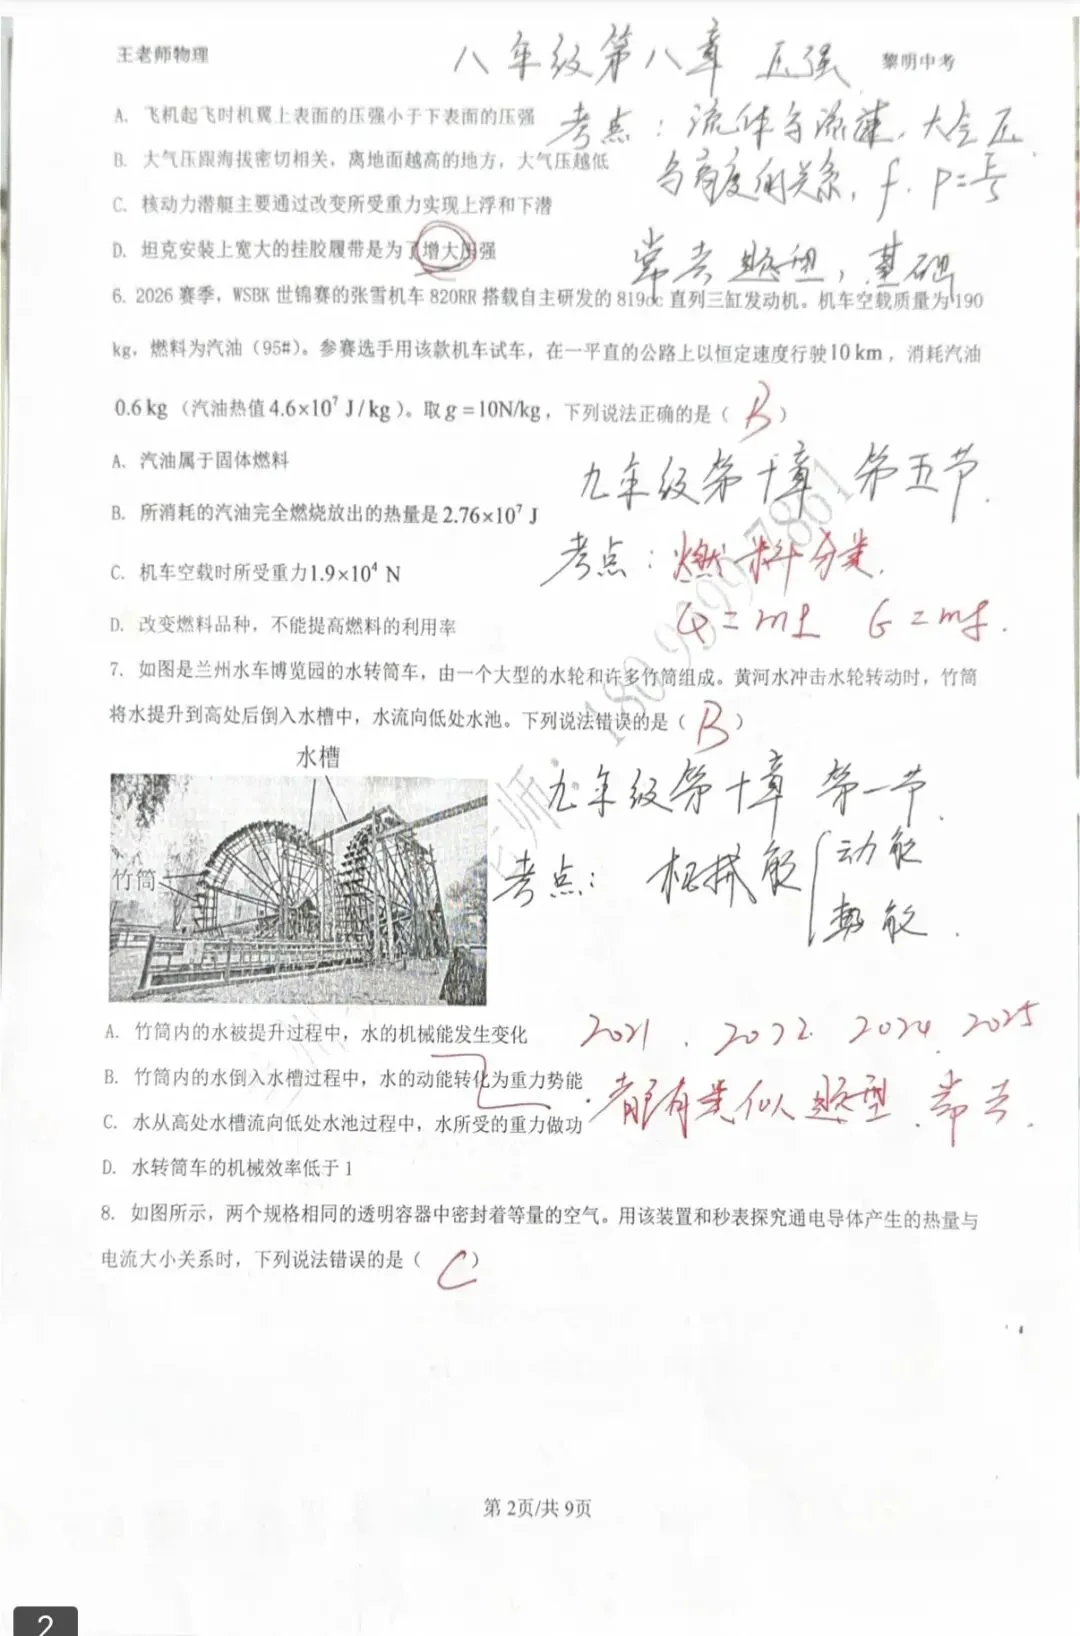 王老师物理
八年级第八章 压强
黎明中考
A. 飞机起飞时机翼上表面的压强小于下表面的压强
考点：流体与流速，大气压
B. 大气压跟海拔密切相关，离地面越高的地方，大气压越低
与高度的关系，f. P=F/S
C. 核动力潜艇主要通过改变所受重力实现上浮和下潜
D. 坦克安装上宽大的挂胶履带是为了增大压强
常考题型，基础
6. 2026 赛季，WSBK 世锦赛的张雪机车 820RR 搭载自主研发的 819cc 直列三缸发动机。机车空载质量为 190
kg，燃料为汽油（95#）。参赛选手用该款机车试车，在一平直的公路上以恒定速度行驶10 km，消耗汽油
0.6 kg（汽油热值 4.6×10⁷ J/kg）。取 g=10N/kg，下列说法正确的是（ B ）
A. 汽油属于固体燃料
九年级第十章 第五节.
B. 所消耗的汽油完全燃烧放出的热量是 2.76×10⁷ J
考点：燃料分类.
C. 机车空载时所受重力1.9×10⁴ N
D. 改变燃料品种，不能提高燃料的利用率
Q=mq G=mg.
7. 如图是兰州水车博览园的水转筒车，由一个大型的水轮和许多竹筒组成。黄河水冲击水轮转动时，竹筒
将水提升到高处后倒入水槽中，水流向低处水池。下列说法错误的是（ B ）
水槽
九年级第十章 第一节.
竹筒
考点：机械能 动能
势能.
A. 竹筒内的水被提升过程中，水的机械能发生变化
2021. 2022. 2024. 2025
B. 竹筒内的水倒入水槽过程中，水的动能转化为重力势能
都有类似题型.常考.
C. 水从高处水槽流向低处水池过程中，水所受的重力做功
D. 水转筒车的机械效率低于 1
8. 如图所示，两个规格相同的透明容器中密封着等量的空气。用该装置和秒表探究通电导体产生的热量与
电流大小关系时，下列说法错误的是（ C ）
第 2页/共 9页
2